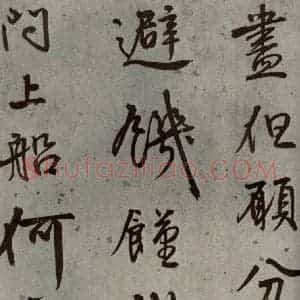 盡但願分
避饑饉
問上船何
shufaziliao.com